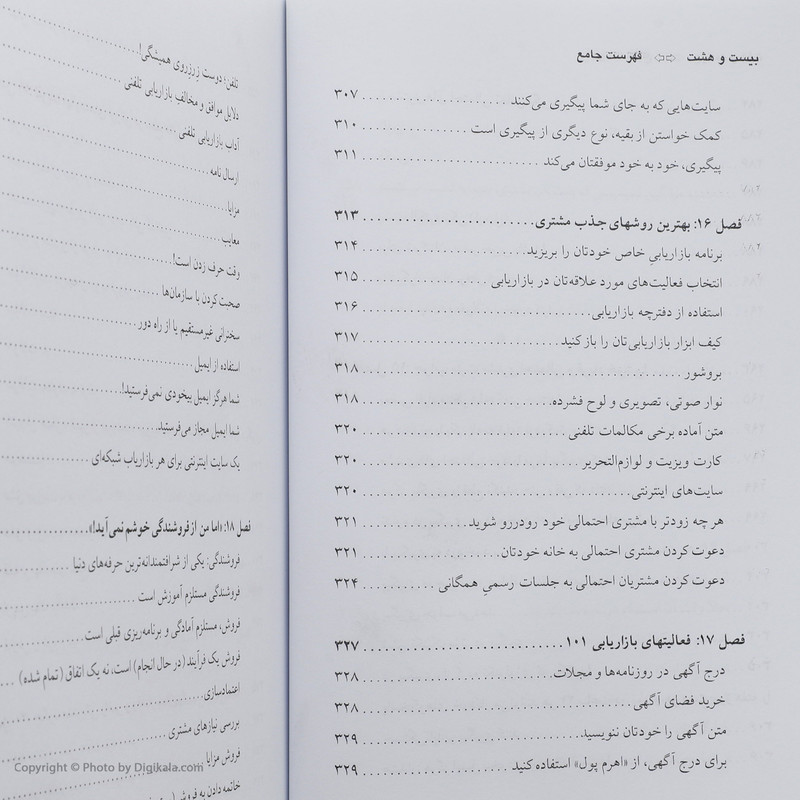 بیست و هشت ⇦⇨ فهرست جامع
سایت‌هایی که به جای شما پیگیری می‌کنند ۳۰۷
کمک خواستن از بقیه، نوع دیگری از پیگیری است ۳۱۰
پیگیری، خود به خود موفقتان می‌کند ۳۱۱
فصل ۱۶: بهترین روشهای جذب مشتری ۳۱۳
برنامه بازاریابیِ خاص خودتان را بریزید ۳۱۴
انتخاب فعالیت‌های مورد علاقه‌تان در بازاریابی ۳۱۵
استفاده از دفترچه بازاریابی ۳۱۶
کیف ابزار بازاریابی‌تان را باز کنید ۳۱۷
بروشور ۳۱۸
نوار صوتی، تصویری و لوح فشرده ۳۱۸
متن آماده برخی مکالمات تلفنی ۳۲۰
کارت ویزیت و لوازم‌التحریر ۳۲۰
سایت‌های اینترنتی ۳۲۰
هر چه زودتر با مشتری احتمالی خود رودررو شوید ۳۲۱
دعوت کردن مشتری احتمالی به خانه خودتان ۳۲۱
دعوت کردن مشتریان احتمالی به جلسات رسمیِ همگانی ۳۲۴
فصل ۱۷: فعالیتهای بازاریابی ۱۰۱ ۳۲۷
درج آگهی در روزنامه‌ها و مجلات ۳۲۸
خرید فضای آگهی ۳۲۸
متن آگهی را خودتان ننویسید ۳۲۹
برای درج آگهی، از «اهرم پول» استفاده کنید ۳۲۹
تلفن؛ دوست زِرزِروی همیشگی!
دلایل موافق و مخالفِ بازاریابی تلفنی
آداب بازاریابی تلفنی
ارسال نامه
مزایا
معایب
وقت حرف زدن است!
صحبت کردن با سازمان‌ها
سخنرانی غیرمستقیم یا از راه دور
استفاده از ایمیل
شما هرگز ایمیل بیخودی نمی‌فرستید!
شما ایمیل مجاز می‌فرستید
یک سایت اینترنتی برای هر بازاریاب شبکه‌ای
فصل ۱۸: «اما من از فروشندگی خوشم نمی‌آید!»
فروشندگی: یکی از شرافتمندانه‌ترین حرفه‌های دنیا
فروشندگی مستلزم آموزش است
فروش، مستلزم آمادگی و برنامه‌ریزی قبلی است
فروش یک فرآیند (در حال انجام) است، نه یک اتفاق (تمام شده)
اعتمادسازی
بررسی نیازهای مشتری
فروش مزایا
خاتمه دادن به فروش
Copyright © Photo by Digikala.com